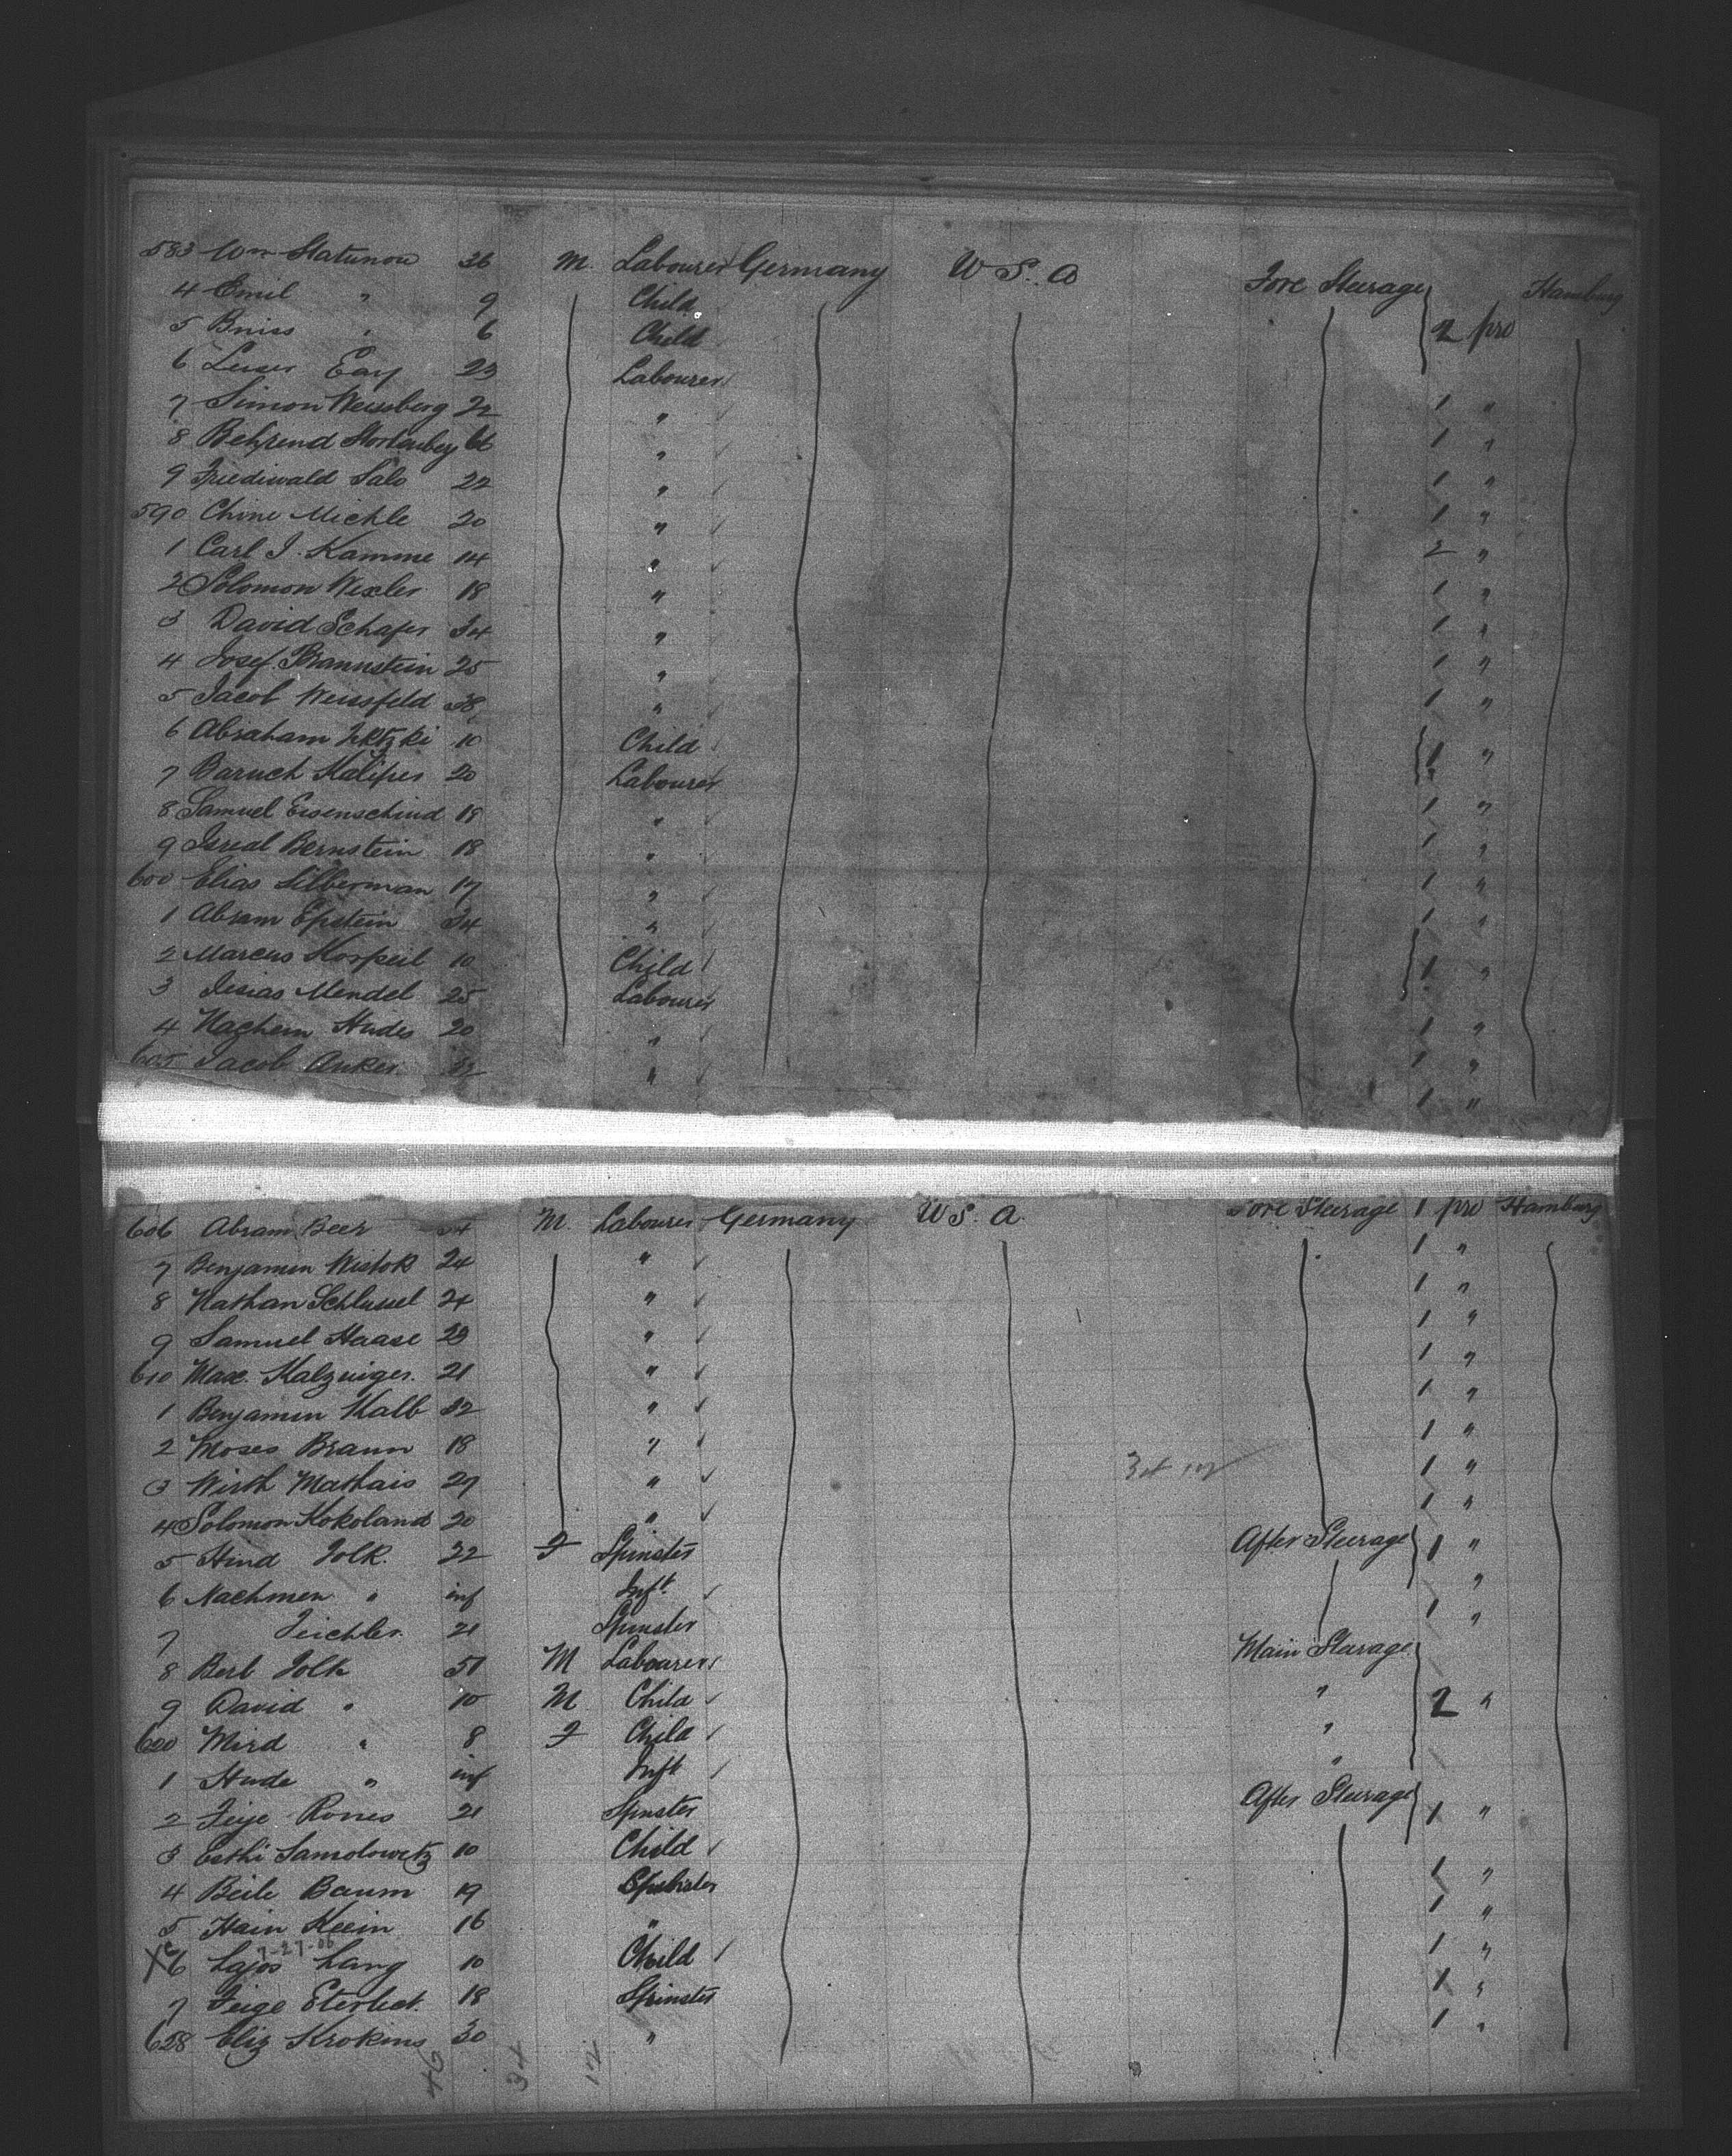 583 Wm Statunow 36 M. Labourer Germany U.S.A Fore Steerage Hamburg
4 Emil " 9 Child
5 " 6 Child 2 pro
6 Leiser 23 Labourer
7 Simon Weissberg 22 " 1 "
8 Behrend " 1 "
9 Friediwald Salo 22 " 1 "
590 Chine Michle 20 " 1 "
1 Carl J. Kamme 14 " 2 "
2 Solomon Wexler 18 " 1 "
3 David Schafer 34 " 1 "
4 Josef Brannstein 25 " 1 "
5 Jacob Weissfeld 38 " 1 "
6 Abraham 10 Child 1 "
7 Baruch Kalifer 20 Labourer
8 Samuel Eisenschind 18 " 1 "
9 Isreal Bernstein 18 " 1 "
600 Elias Silberman 17 " 1 "
1 Abram Epstein 34 " 1 "
2 Marcus Korpeil 10 Child 1 "
3 Iesias Mendel 25 Labourer
4 Nachem Hudes 20 " 1 "
605 Jacob Anker 32 " 1 "
1 "
606 Abram Beer 34 M. Labourer Germany U.S.A. Fore Steerage 1 pro Hamburg
7 Benjamen Wistok 24 " 1 "
8 Nathan Schlussel 24 " 1 "
9 Samuel Haase 23 " 1 "
610 Max. Kalzuiger. 21 " 1 "
1 Benjamen Kalb 32 " 1 "
2 Moses Braun 18 " 1 "
3 Wirth Mathais 27 " 1 "
4 Solomon Kokoland 20 " 1 "
5 Hind Jolk. 22 F Spinster After Steerage 1 "
6 Nachmen " inf Inft "
7 Teichler. 21 Spinster 1 "
8 Berl Jolk 51 M Labourer Main Steerage
9 David " 10 M Child " 2 "
620 Mird " 8 F Child "
1 Hude " inf Inft "
2 Feige Rones 21 Spinster After Steerage 1 "
3 Esthi Samolowitz 10 Child
4 Beile Baum 19 Spinster 1 "
5 Hain Keein 16 " 1 "
7-27-06
X 6 Lajos Lang 10 Child 1 "
7 Feige Eterlect. 18 Spinster 1 "
628 Eliz Krokins 30 " 1 "
34 12